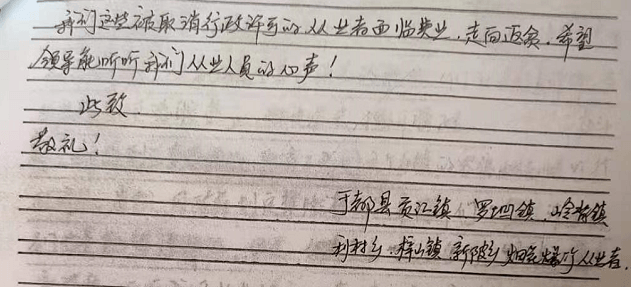 我们这些被取消行政许可的从业者面临失业,走向返贫,希望
领导能听听我们从业人员的心声!
此致
敬礼!
于都县贡江镇、罗坳镇、岭背镇
利村乡、梓山镇、新陂乡烟花爆竹从业者.